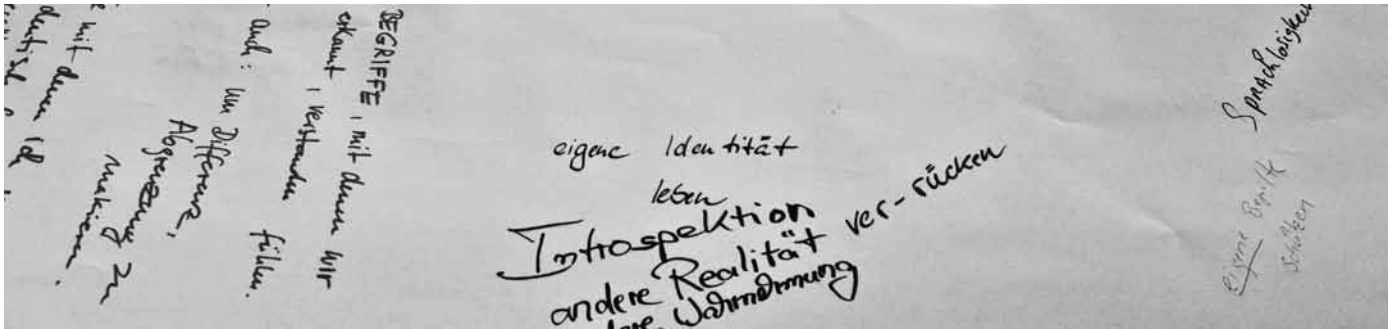 BEGRIFFE, mit denen wir
erkannt, verstanden fühlen.
auch: um Differenz,
Abgrenzung zu
markieren.
mit denen ich
eigene Identität
leben
Introspektion
andere Realität ver-rücken
Warnehmung
Sprachlosigkeit
Eigene Begriffe
schützen